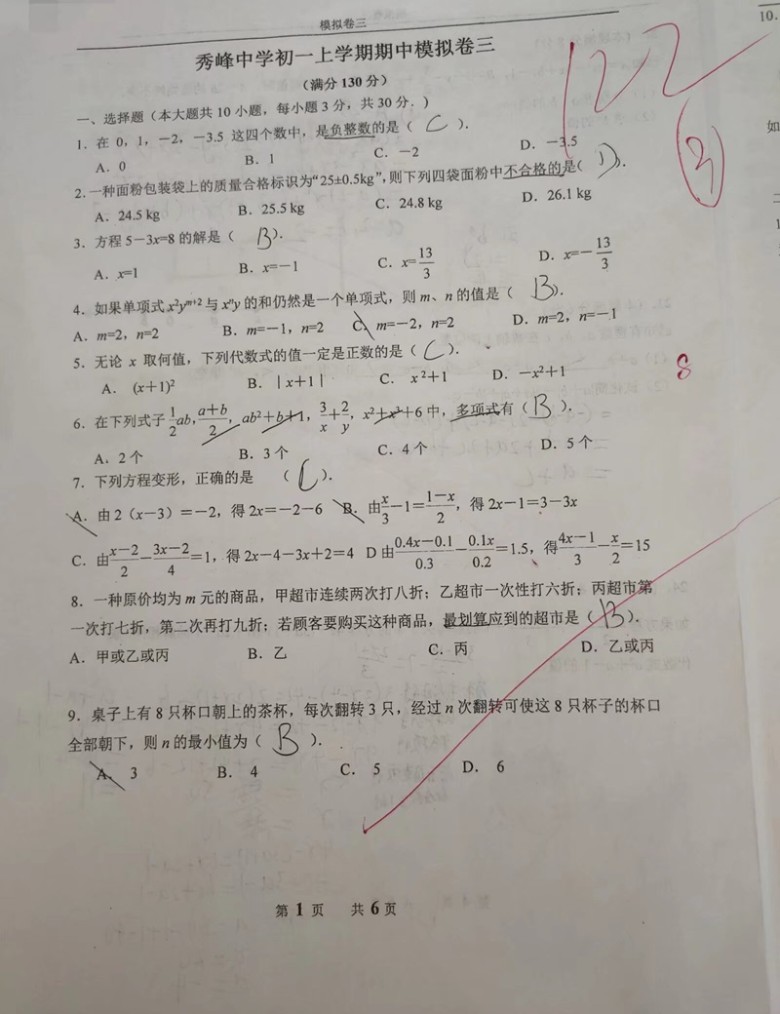 模拟卷三
秀峰中学初一上学期期中模拟卷三
(满分 130 分)
122
③
10.
如
一、选择题（本大题共 10 小题，每小题 3 分，共 30 分．)
1．在 0，1，−2，−3.5 这四个数中，是负整数的是（ C ）．
A．0 B．1 C．−2 D．−3.5
2．一种面粉包装袋上的质量合格标识为“25±0.5kg”，则下列四袋面粉中不合格的是( D )．
A．24.5 kg B．25.5 kg C．24.8 kg D．26.1 kg
3．方程 5－3x=8 的解是（ B ）．
A．x=1 B．x=－1 C．x=13/3 D．x=－13/3
4．如果单项式 x²yᵐ⁺² 与 xⁿy 的和仍然是一个单项式，则 m、n 的值是（ B ）．
A．m=2，n=2 B．m=－1，n=2 C．m=－2，n=2 D．m=2，n=－1
5．无论 x 取何值，下列代数式的值一定是正数的是（ C ）．
A．(x+1)² B．| x+1 | C．x²+1 D．−x²+1
8
6．在下列式子 1/2 ab, (a+b)/2, ab²+b+1, 3/x+2/y, x²+x³+6 中，多项式有（ B ）．
A．2 个 B．3 个 C．4 个 D．5 个
7．下列方程变形，正确的是 （ C ）．
A．由 2（x－3）=－2，得 2x=－2－6 B．由 x/3－1=(1－x)/2，得 2x－1=3－3x
C．由 (x－2)/2－(3x－2)/4=1，得 2x－4－3x+2=4 D 由 (0.4x－0.1)/0.3－0.1x/0.2=1.5，得 (4x－1)/3－x/2=15
8．一种原价均为 m 元的商品，甲超市连续两次打八折；乙超市一次性打六折；丙超市第
一次打七折，第二次再打九折；若顾客要购买这种商品，最划算应到的超市是（ B ）．
A．甲或乙或丙 B．乙 C．丙 D．乙或丙
9．桌子上有 8 只杯口朝上的茶杯，每次翻转 3 只，经过 n 次翻转可使这 8 只杯子的杯口
全部朝下，则 n 的最小值为（ B ）．
A． 3 B． 4 C． 5 D． 6
第 1 页 共 6 页